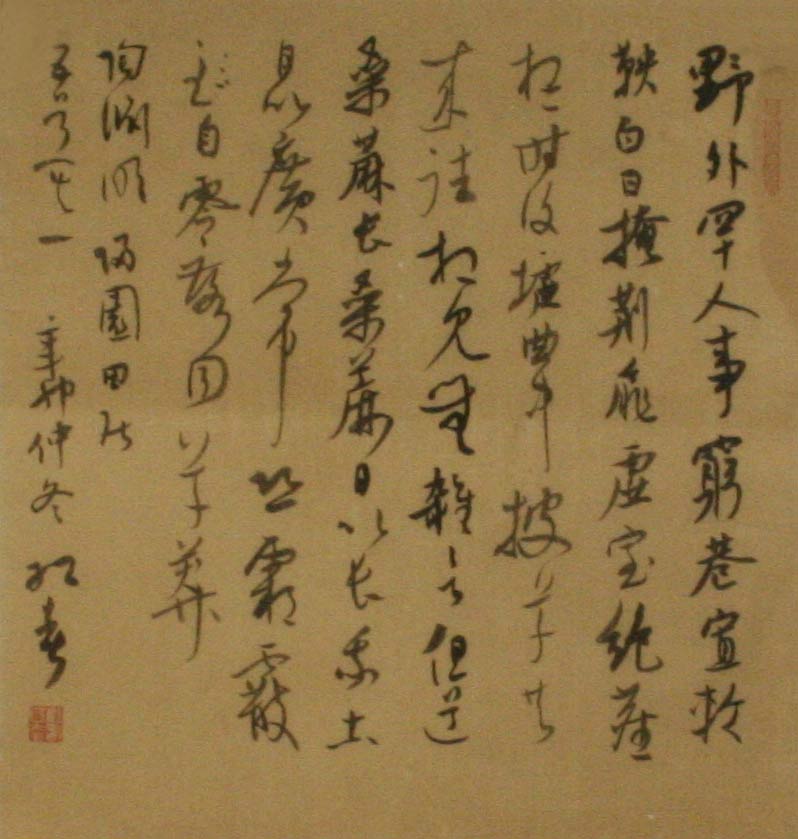 野外罕人事窮巷寡輪
鞅白日掩荆扉虚室絶塵
想時復墟曲中披草共
来往相見無雜言但道
桑麻長桑麻日以長我土
日以廣常恐霜霰
至自零落同草莽
陶渊明歸園田居
五首其一 辛卯仲冬 春